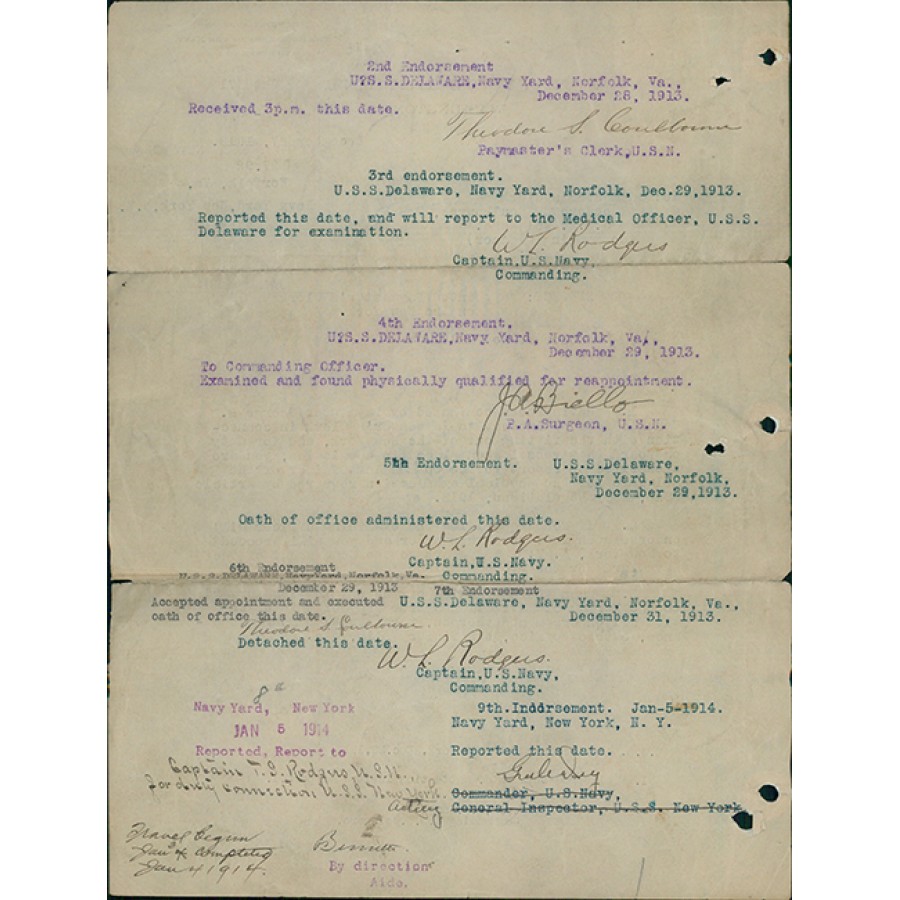 2nd Endorsement
U?S.S.DELAWARE,Navy Yard, Norfolk, Va.,
December 28, 1913.
Received 3p.m. this date.
Theodore S. Coulbourn
Paymaster's Clerk,U.S.N.
3rd endorsement.
U.S.S.Delaware, Navy Yard, Norfolk, Dec.29,1913.
Reported this date, and will report to the Medical Officer, U.S.S.
Delaware for examination.
W. L. Rodgers
Captain,U.S.Navy,
Commanding.
4th Endorsement.
U?S.S.DELAWARE,Navy Yard, Norfolk, Va/,
December 29, 1913.
To Commanding Officer.
Examined and found physically qualified for reappointment.
J. A. Biello
P.A.Surgeon, U.S.N.
5th Endorsement. U.S.S.Delaware,
Navy Yard, Norfolk,
December 29,1913.
Oath of office administered this date.
W. L. Rodgers.
Captain,U.S.Navy.
Commanding.
6th Endorsement
U.S.S.DELAWARE,NavyYard,Norfolk,Va.
December 29, 1913
Accepted appointment and executed
oath of office this date.
Theodore S. Coulbourn.
7th Endorsement
U.S.S.Delaware, Navy Yard, Norfolk, Va.,
December 31, 1913.
Detached this date.
W. L. Rodgers.
Captain,U.S.Navy,
Commanding.
8th
Navy Yard, New York
JAN 5 1914
Reported, Report to
Captain T. S. Rodgers, U.S.N.,
for duty connection, U.S.S. New York.
Bennett
By direction
Aide.
Travel begun
Jan 4 completed
Jan 4 1914.
9th. Inddrsement. Jan-5-1914.
Navy Yard, New York, N. Y.
Reported this date.
Commander, U.S.Navy,
Acting General Inspector, U.S.S. New York